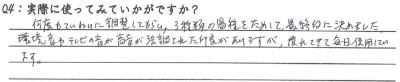 Q4：実際に使ってみていかがですか？
何度もていねいに調整してもらい、3種類の器種をためして、最終的に決めました
環境音やテレビの音が高音が強調された印象がありますが、慣れてきて毎日使用してい
ます。